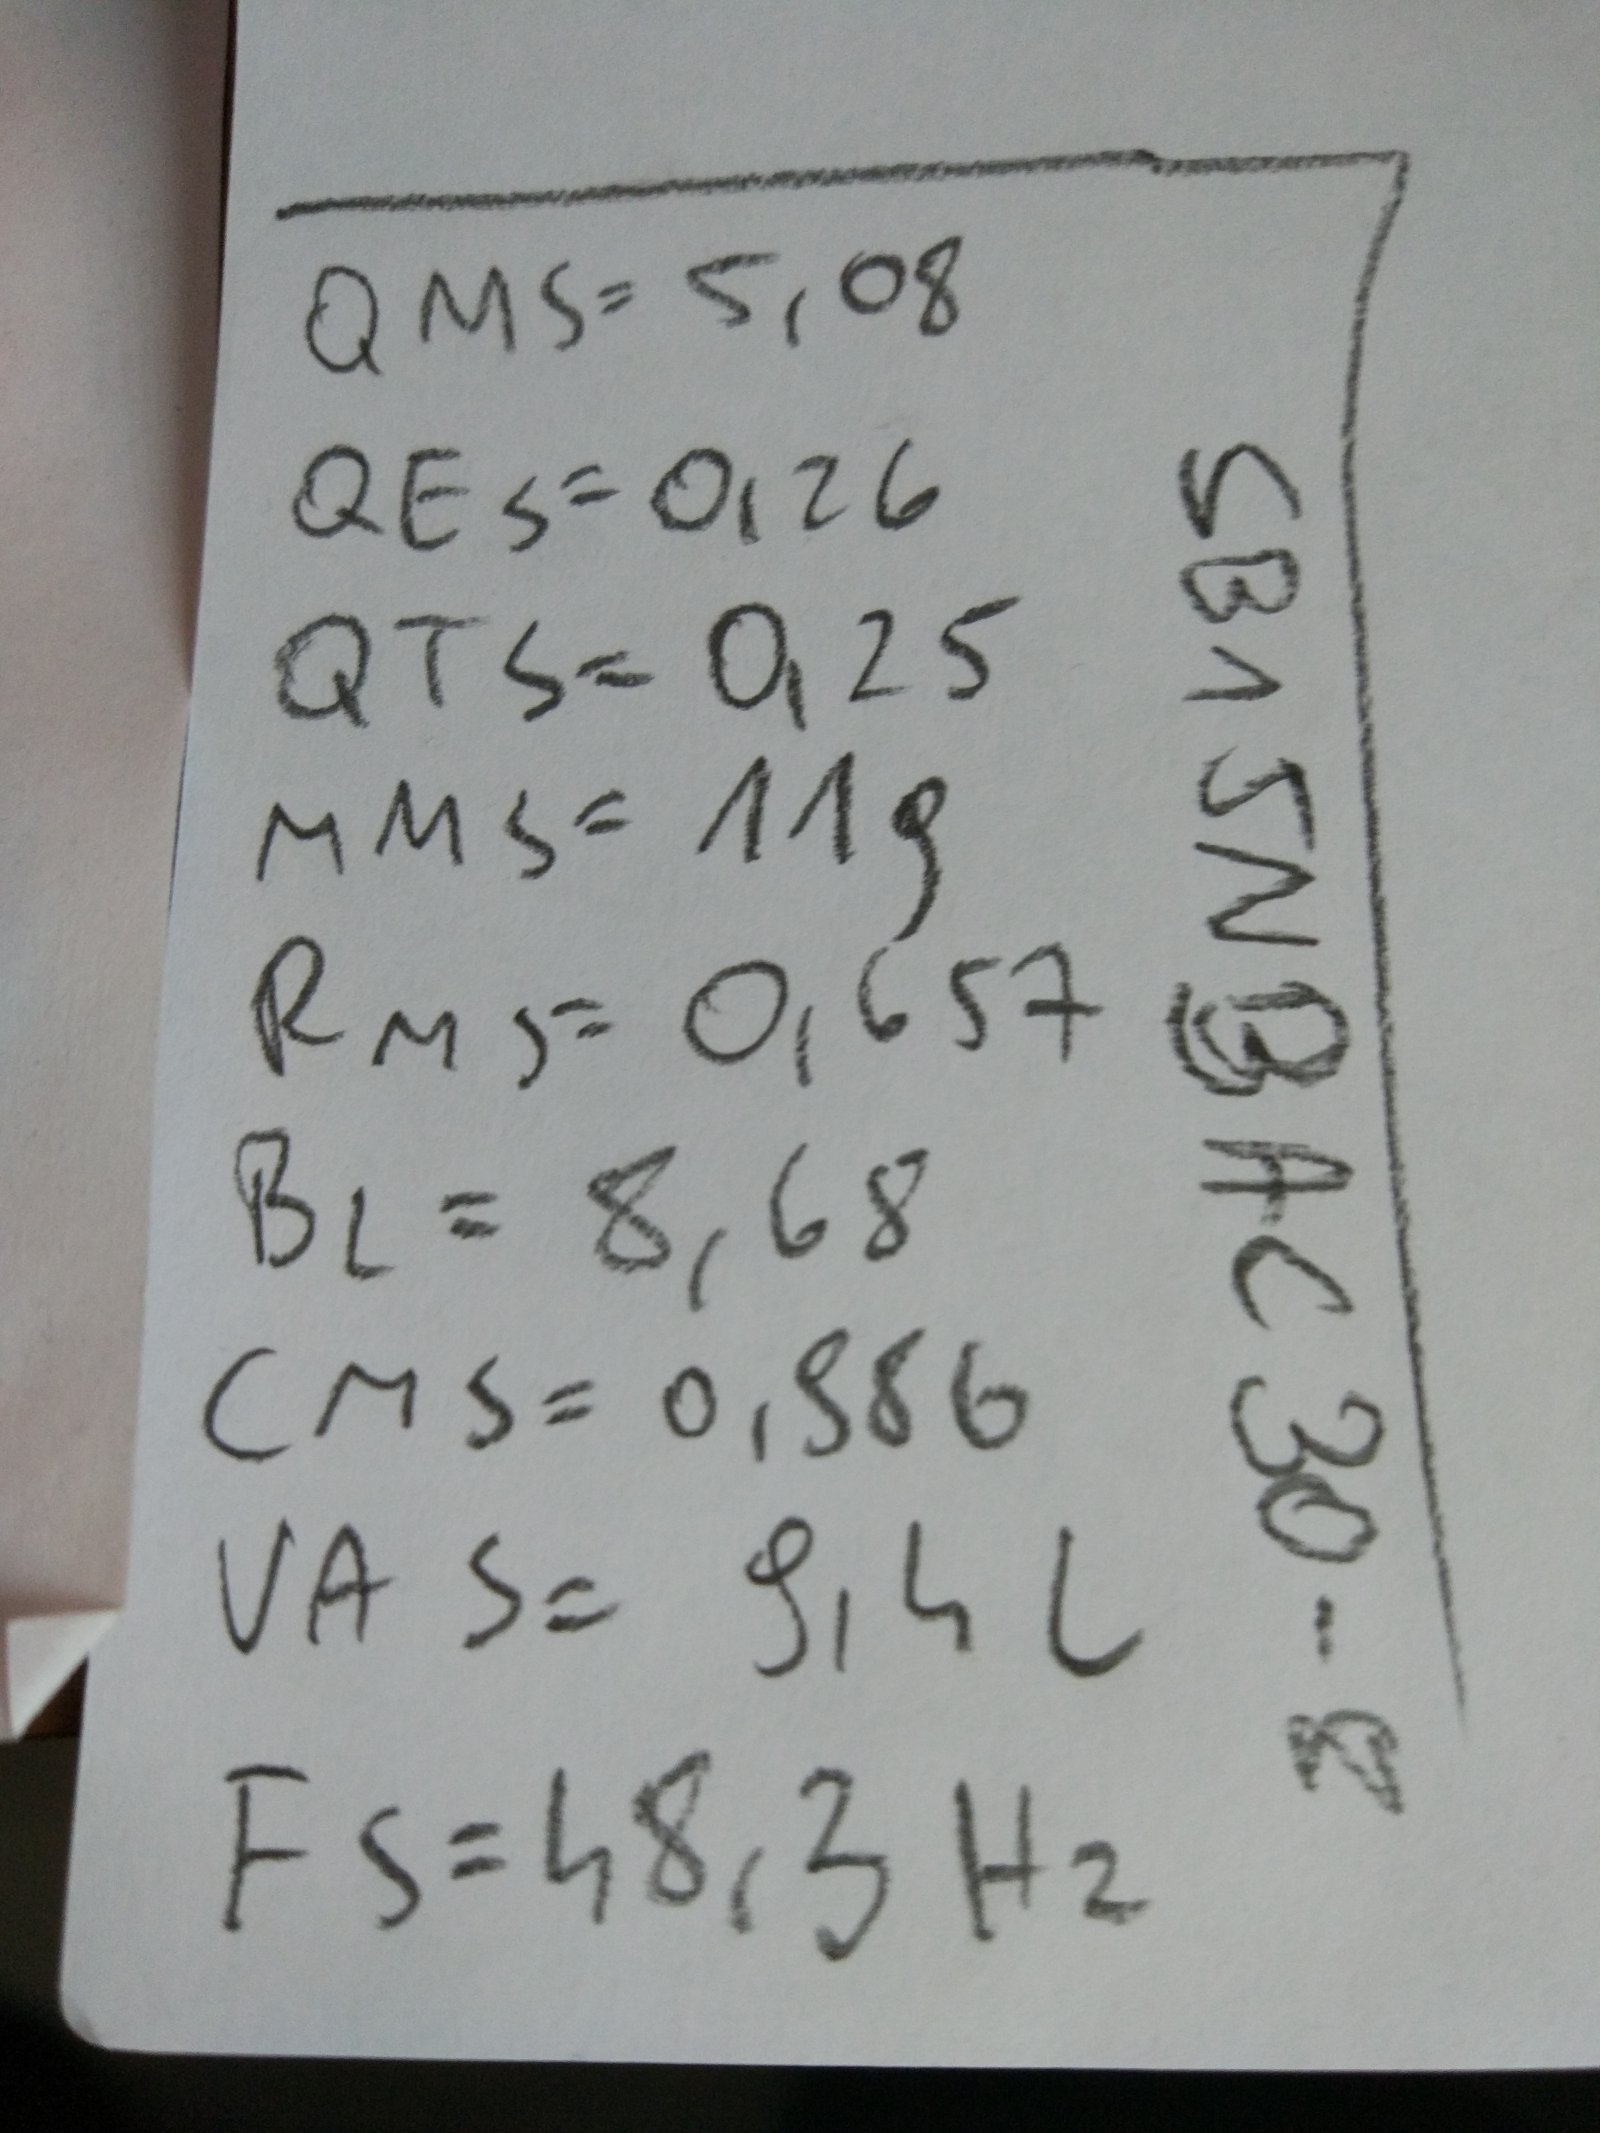 QMS= 5,08
QES=0,26
QTS= 0,25
MMS= 11g
RMS= 0,657
BL= 8,68
CMS= 0,986
VAS= 9,4L
FS=48,3Hz
SB15NBAC30-8